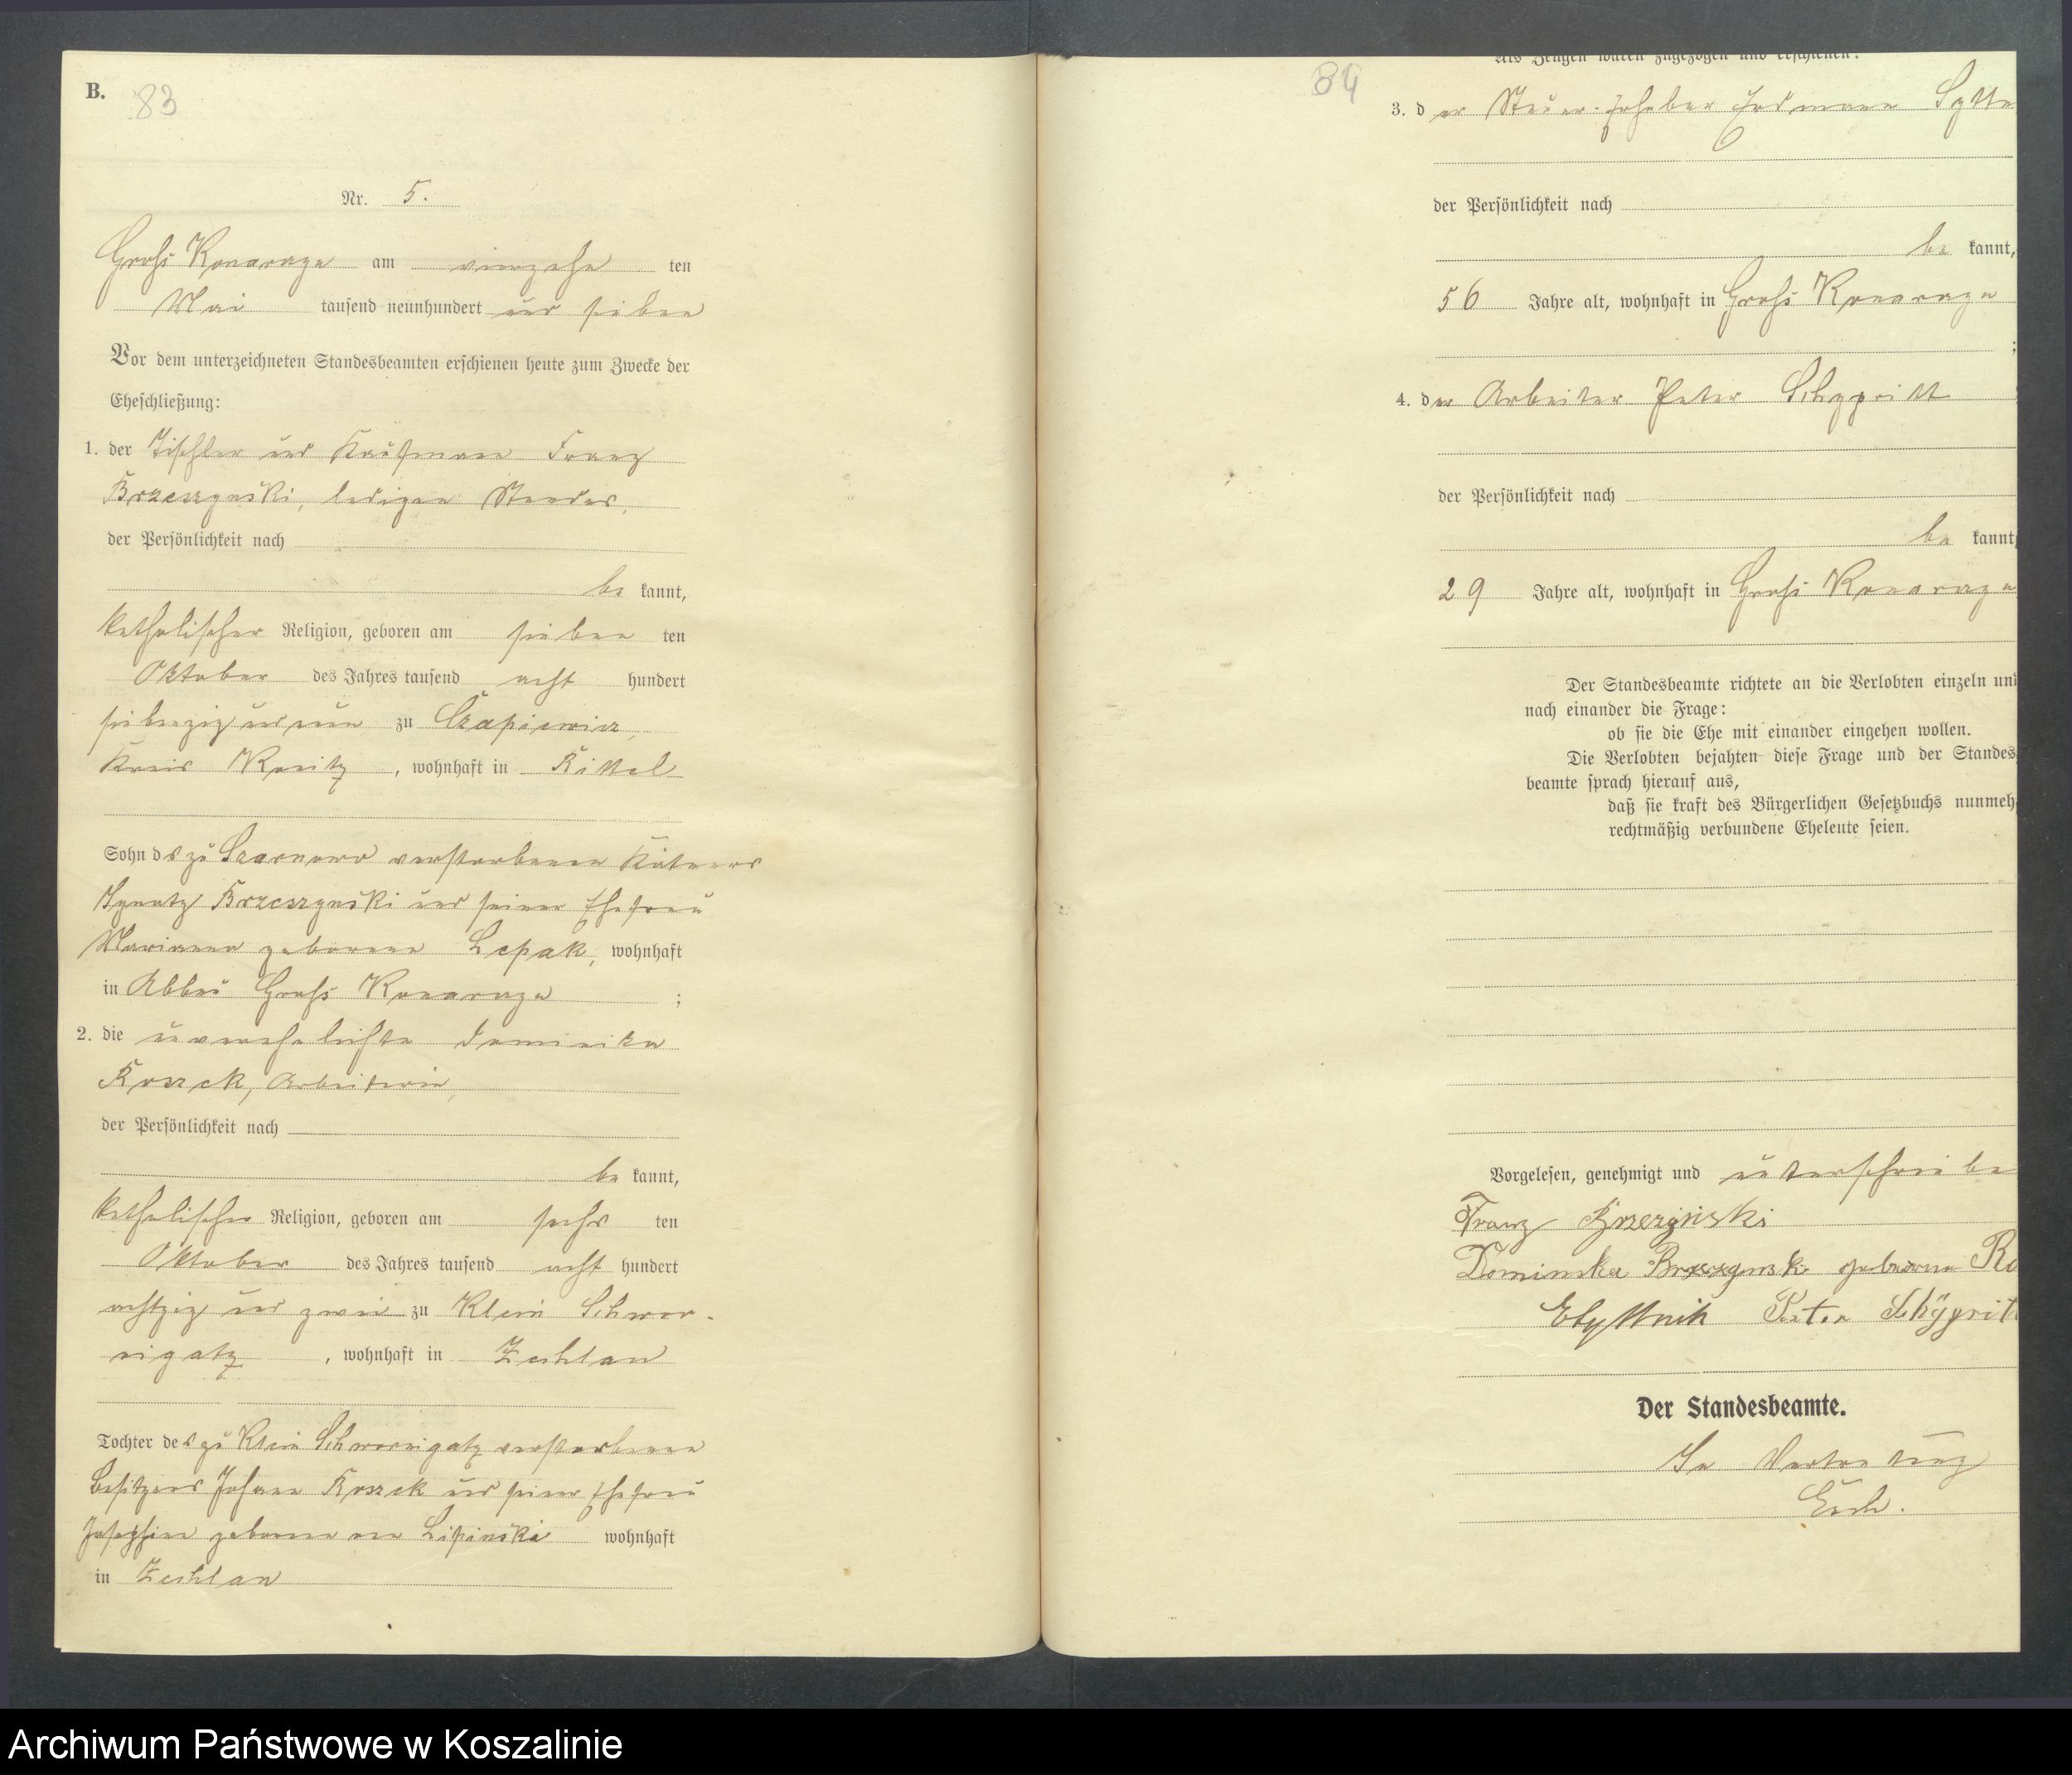 B. 83
Nr. 5.
Groß Konarzyn am vierzehn ten
Mai tausend neunhundert und sieben
Vor dem unterzeichneten Standesbeamten erschienen heute zum Zwecke der
Eheschließung:
1. der Tischler und Kaufmann Franz
Brzeszynski, ledigen Standes,
der Persönlichkeit nach
be kannt,
katholischer Religion, geboren am sieben ten
Oktober des Jahres tausend acht hundert
siebenzig und neun zu Czapiewiz,
Kreis Konitz, wohnhaft in Rittel
Sohn des zu verstorbenen Kätners
Ignatz Brzeszynski und seiner Ehefrau
Marianna geborenen Lepak, wohnhaft
in Abbau Groß Konarzyn;
2. die unverehelichte Dominika
Roszek, Arbeiterin,
der Persönlichkeit nach
be kannt,
katholischer Religion, geboren am sechs ten
Oktober des Jahres tausend acht hundert
achtzig und zwei zu Klein Schwor-
nigatz, wohnhaft in Zechlau
Tochter des zu Klein Schwornigatz verstorbenen
Besitzers Johann Roszek und seiner Ehefrau
Josephine geborenen Lipinski wohnhaft
in Zechlau
84
Als Zeugen waren zugezogen und erschienen:
3. der Steuer-Erheber Erdmann
der Persönlichkeit nach
be kannt,
56 Jahre alt, wohnhaft in Groß Konarzyn
;
4. der Arbeiter Peter Schypritt
der Persönlichkeit nach
be kannt
29 Jahre alt, wohnhaft in Groß Konarzyn
Der Standesbeamte richtete an die Verlobten einzeln und
nach einander die Frage:
ob sie die Ehe mit einander eingehen wollen.
Die Verlobten bejahten diese Frage und der Standes-
beamte sprach hierauf aus,
daß sie kraft des Bürgerlichen Gesetzbuchs nunmeh
rechtmäßig verbundene Eheleute seien.
Vorgelesen, genehmigt und unterschriebe
Franz Brzezynski
Dominika Brzeszynski geborene Ro
Peter Schÿprit
Der Standesbeamte.
In Vertretung